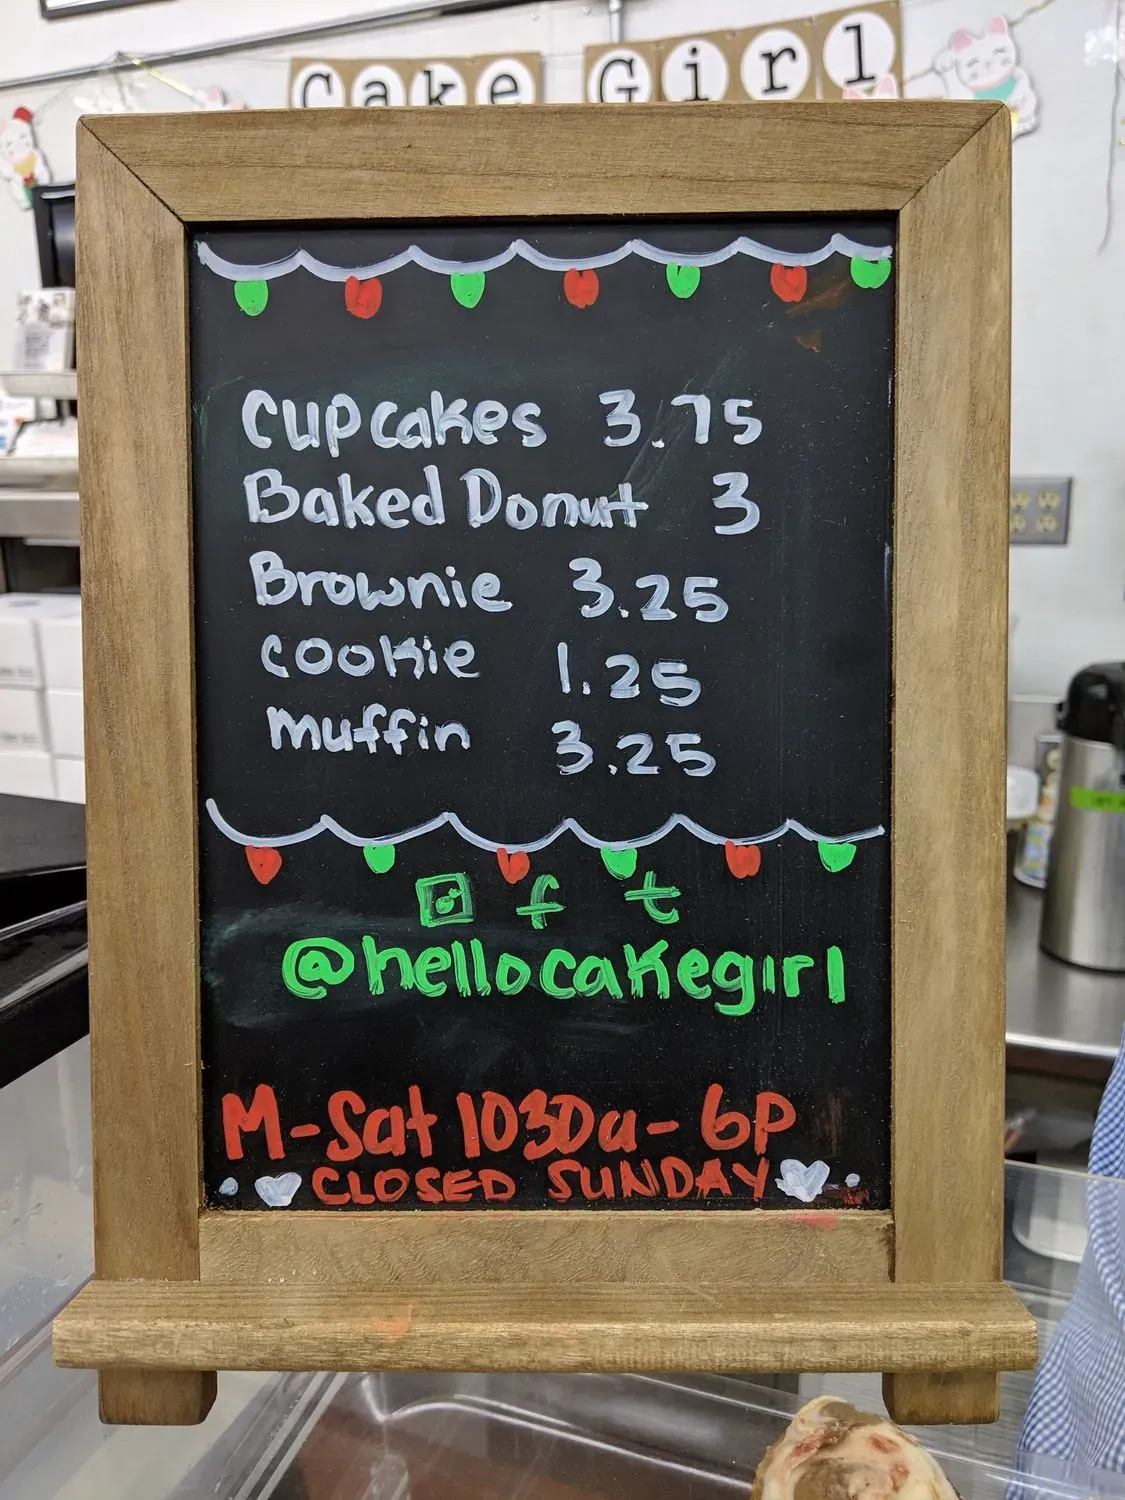 Cake Girl
Cupcakes 3.75
Baked Donut 3
Brownie 3.25
cookie 1.25
muffin 3.25
f t
@hellocakegirl
M-Sat 1030a-6P
CLOSED SUNDAY